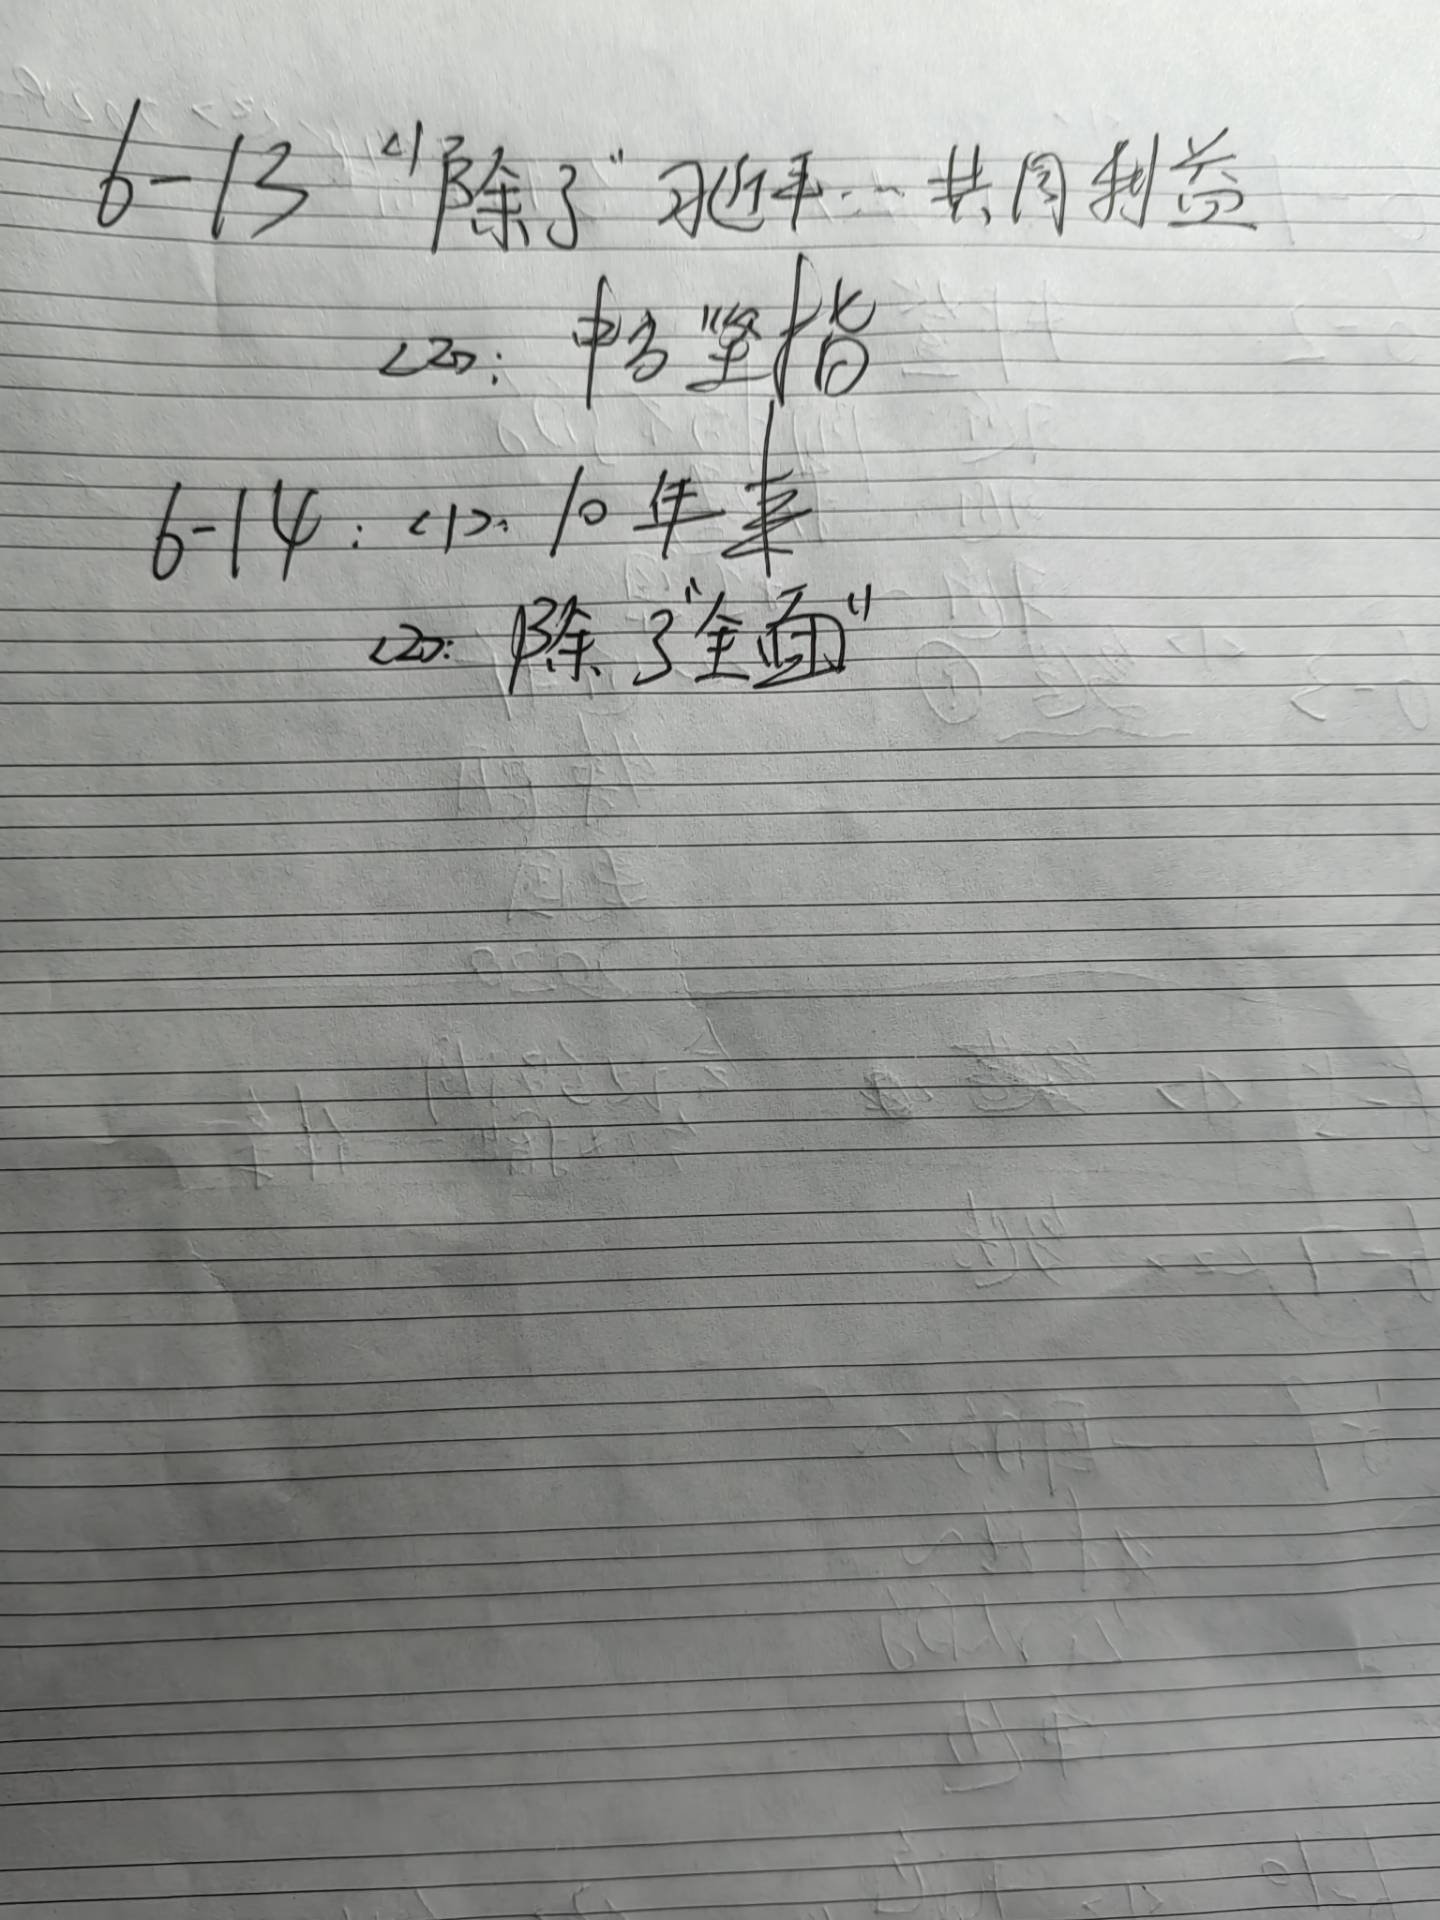 6-13 <1>"除了"习近平……共同利益
<2>: 中方坚指
6-14: <1>: 10年来
<2>: 除了"全面"